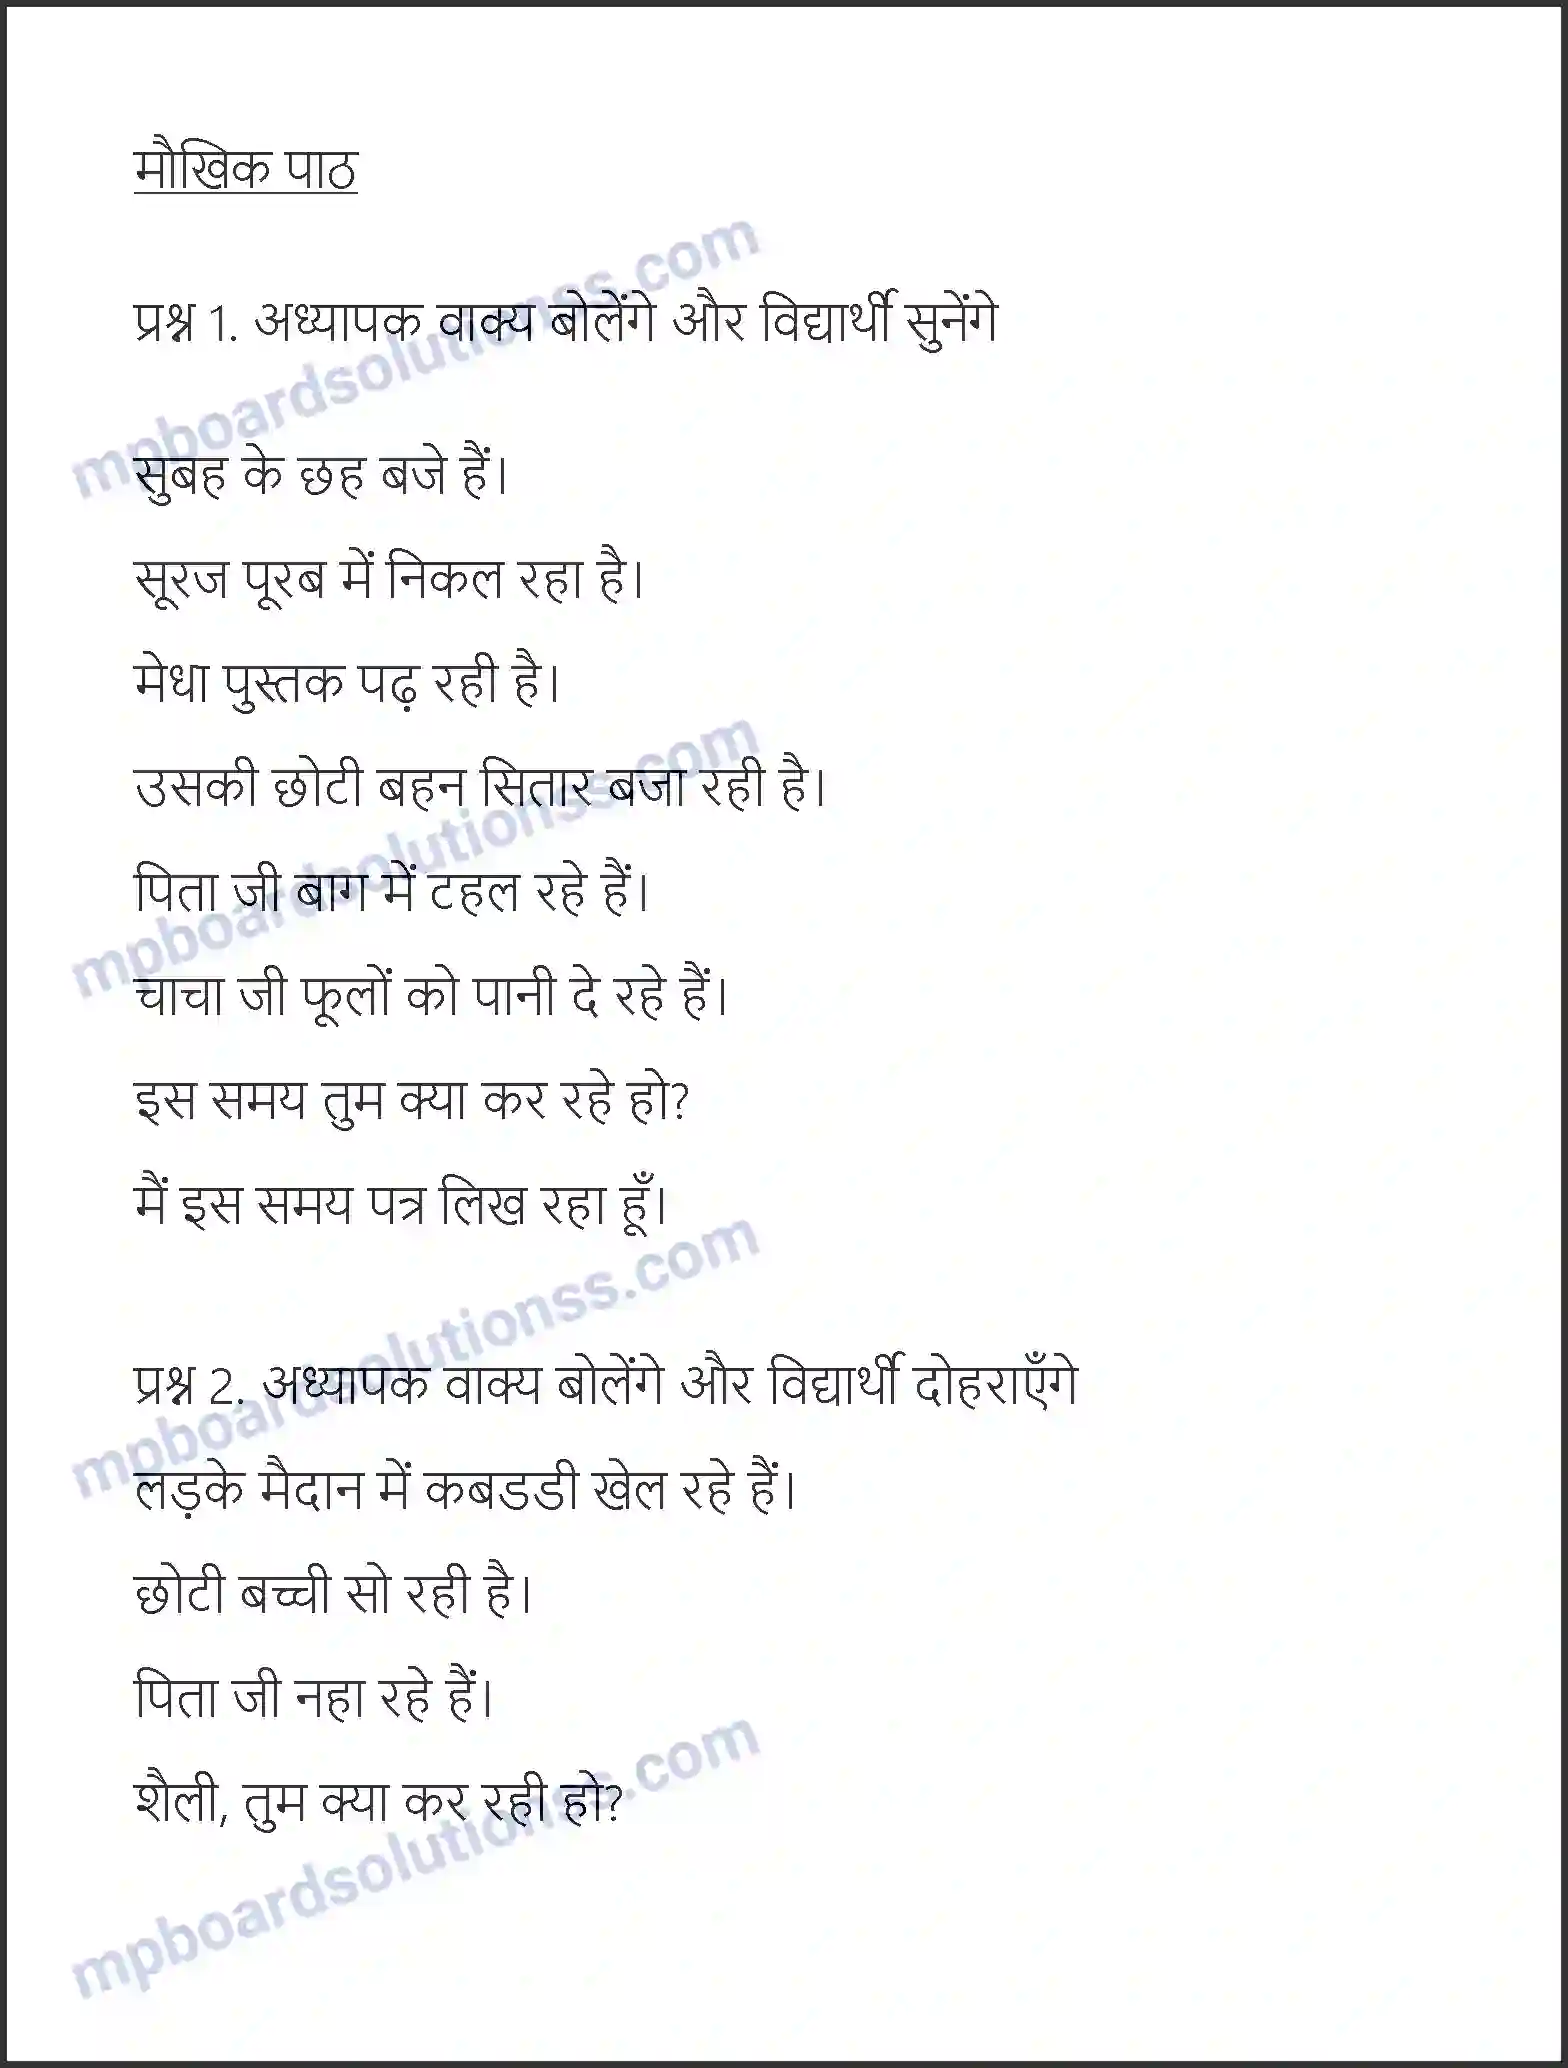 मौखिक पाठ
प्रश्न 1. अध्यापक वाक्य बोलेंगे और विद्यार्थी सुनेंगे
सुबह के छह बजे हैं।
सूरज पूरब में निकल रहा है।
मेधा पुस्तक पढ़ रही है।
उसकी छोटी बहन सितार बजा रही है।
पिता जी बाग में टहल रहे हैं।
चाचा जी फूलों को पानी दे रहे हैं।
इस समय तुम क्या कर रहे हो?
मैं इस समय पत्र लिख रहा हूँ।
प्रश्न 2. अध्यापक वाक्य बोलेंगे और विद्यार्थी दोहराएँगे
लड़के मैदान में कबडडी खेल रहे हैं।
छोटी बच्ची सो रही है।
पिता जी नहा रहे हैं।
शैली, तुम क्या कर रही हो?
mpboardsolutionss.com
mpboardsolutionss.com
mpboardsolutionss.com
mpboardsolutionss.com